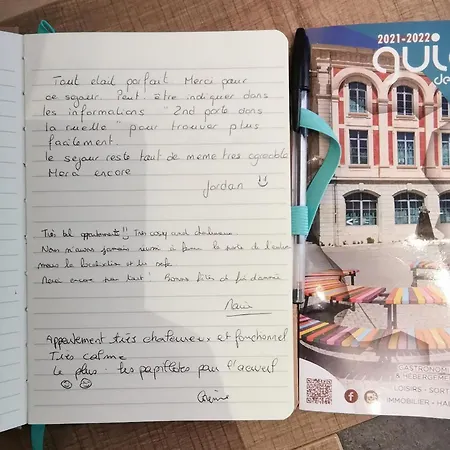 Tout était parfait. Merci pour
ce séjour. Peut être indiquer dans
les informations " 2nd porte dans
la ruelle " pour trouver plus
facilement.
le séjour reste tout de meme très agréable
Merci encore
Jordan
Très bel appartement !! Très cosy and chaleureux.
Nous n'avons jamais réussi à fermer la porte de l'entrée
mais la localisation est très
Merci encore pour tout ! Bonnes fêtes de fin d'année
Marie
Appartement très chaleureux et fonctionnel
Très calme
Le plus : les papillotes pour l'accueil
2021-2022
guid
de
GASTRONOM
& HÉBERGEME
LOISIRS - SORT
IMMOBILIER - HA